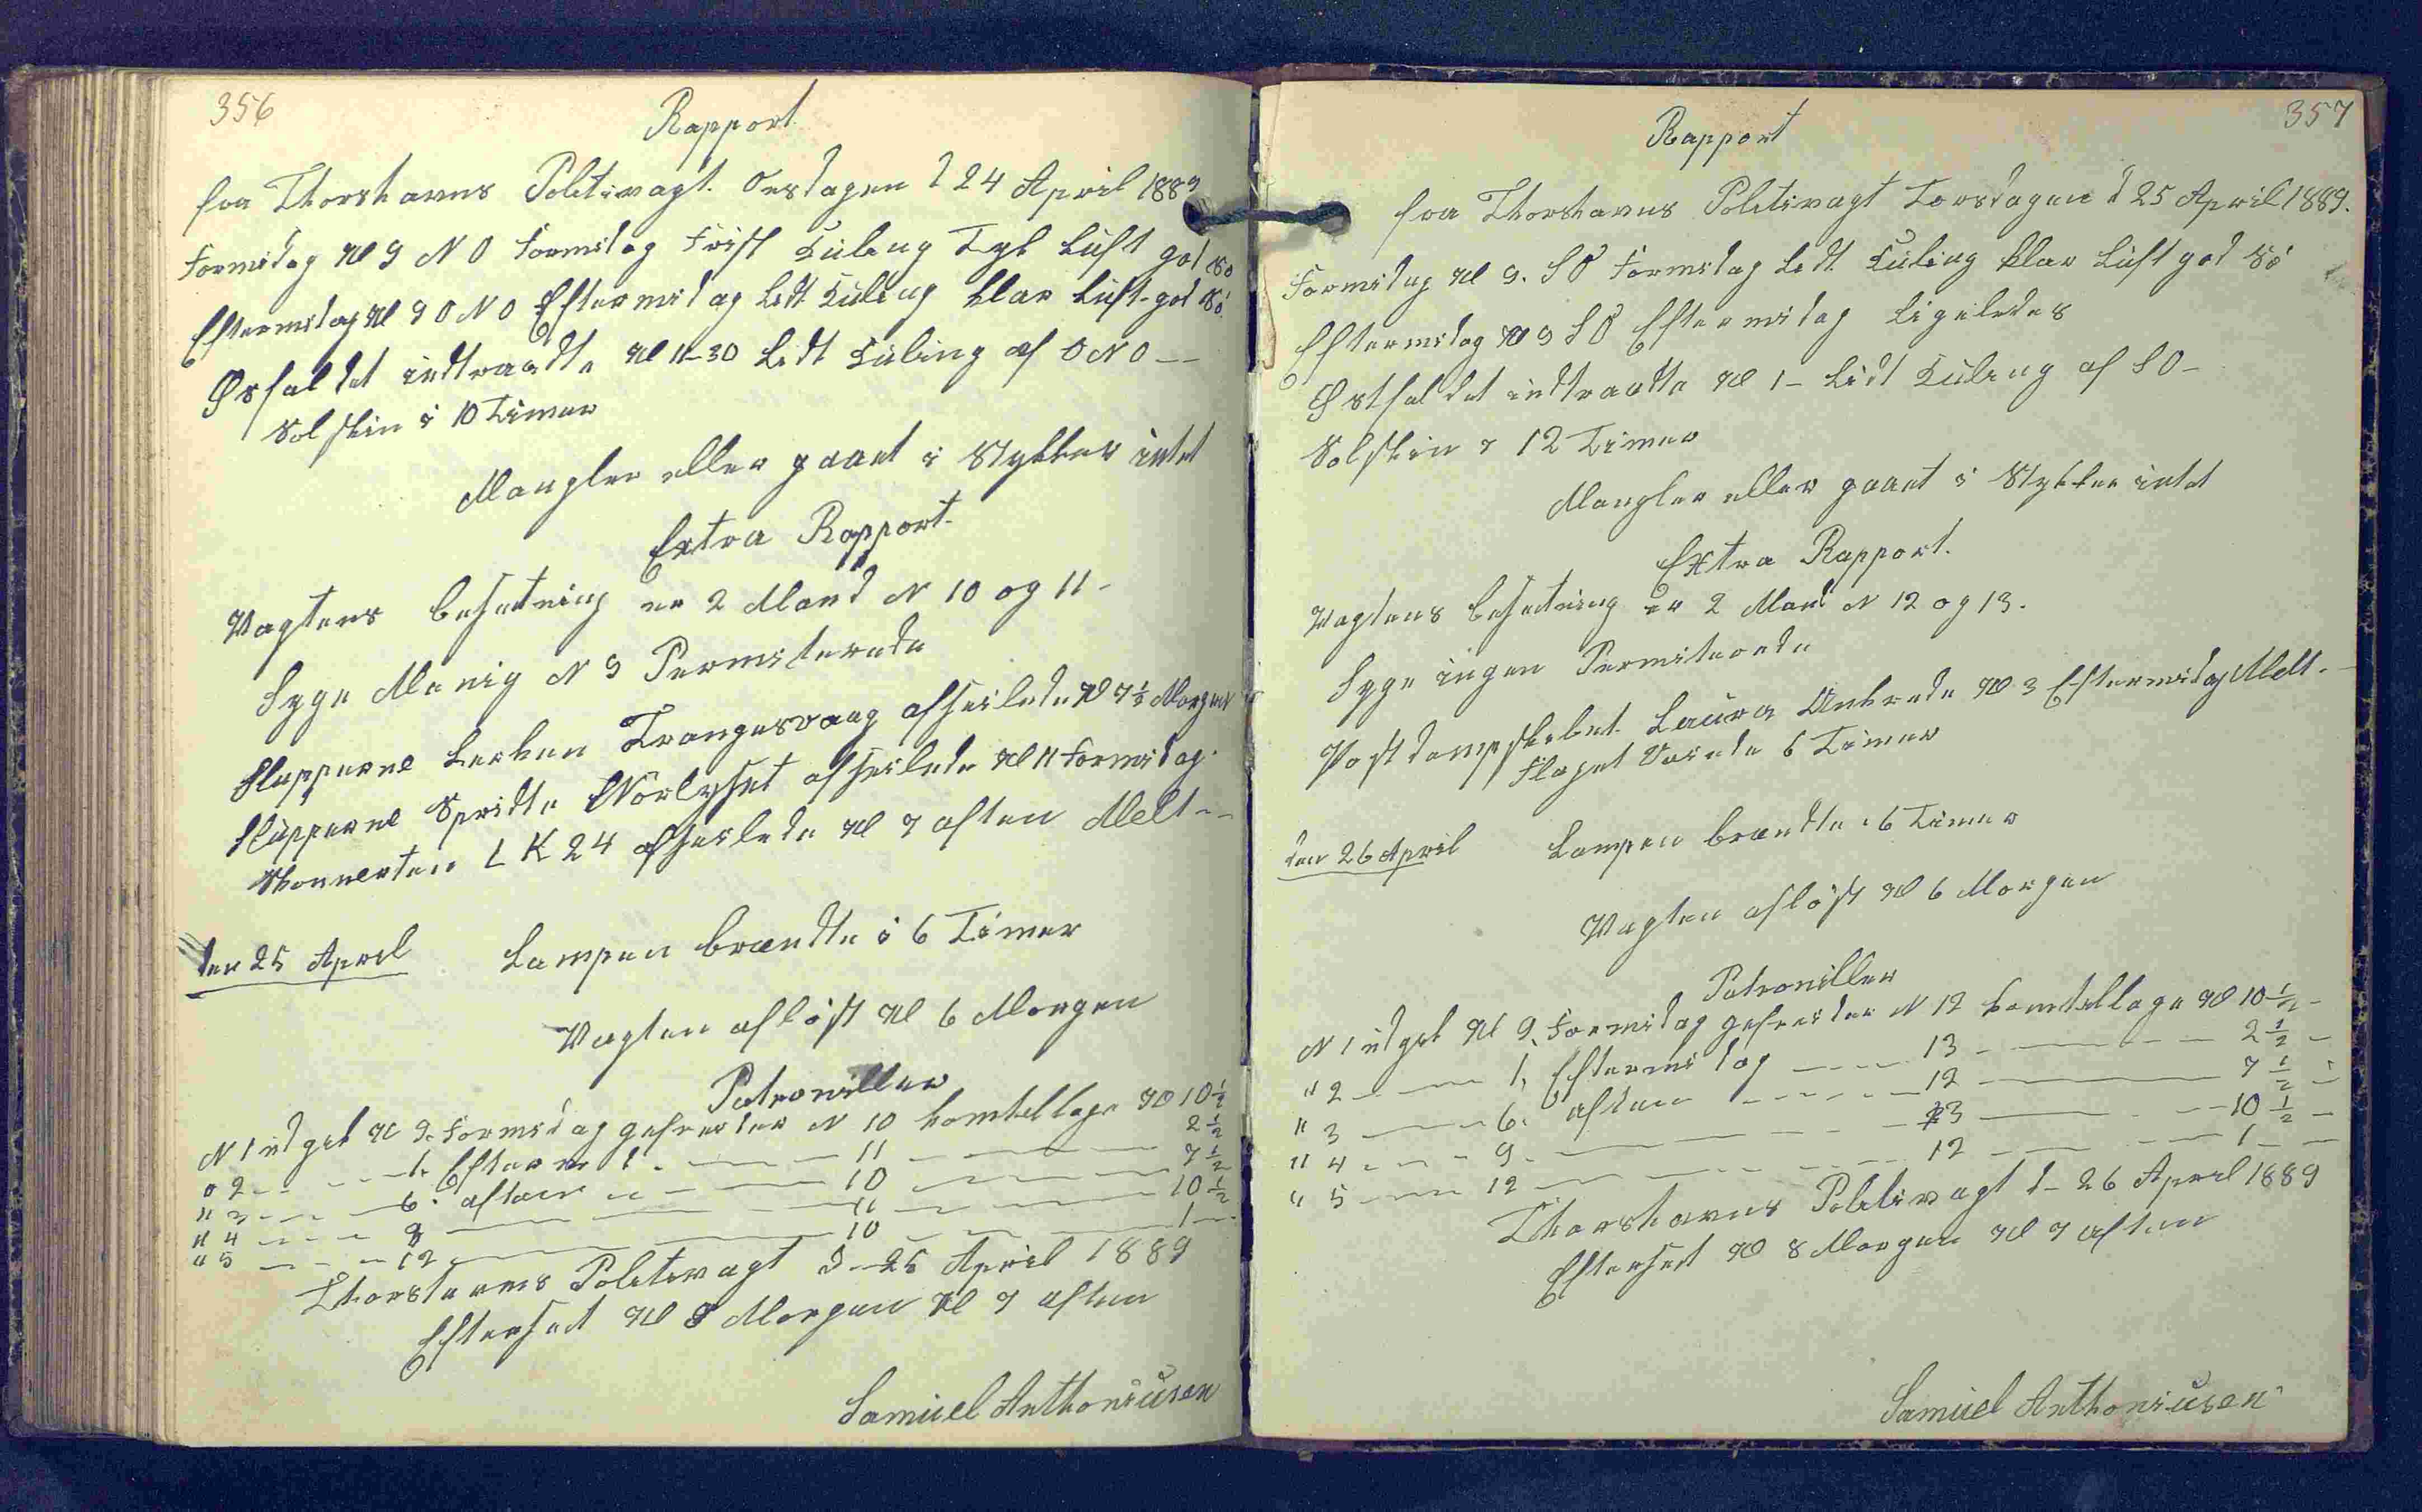 356
Rapport
fra Thorshavns Politivagt. Onsdagen d 24 April 1889
Formidag Kl 9 N O Formidag Frisk Kuling Tyk Luft god Sö
Eftermidag Kl 9 O N O Eftermidag Lidt Kuling klar Luft god Sö
Øsfaldet indtraadte Kl 11-30 Lidt Kuling af O N O --
Solskin i 10 Timer
Mangler eller gaaet i Stykker intet
Extra Rapport.
Vagtens besætning er 2 Mand N 10 og 11 -
Syge Menig N 9 Permiterede
Slupperne Lerken Trangesvaag afseilede Kl 7 1/2 Morgen
Slupperne Spridte Norlyset afseilede Kl 11 Formidag.
Skonnerten L K 24 afseilede Kl 7 aften Melt --
den 25 April Lampen brændte i 6 Timer
Vagten aflöst Kl 6 Morgen
Patrouiller
N 1 udgik Kl 9. Formidag gefreider N 10 komtilbage Kl 10 1/2
" 2 -- -- 1. Efterm d. -- -- 11 -- -- 2 1/2
" 3 -- -- 6. aften -- -- 10 -- -- 7 1/2
" 4 -- -- 9 -- -- 11 -- -- 10 1/2
" 5 -- -- 12 -- -- 10 -- -- 1 --
Thorshavns Politivagt d - 25 April 1889
Efterset Kl 8 Morgen Kl 7 aften
Samuel Anthoniusen
357
Rapport
fra Thorshavns Politivagt Torsdagen d 25 April 1889.
Formidag Kl 9. S O Formidag Lidt Kuling klar Luft god Sö
Eftermidag Kl 9 S O Eftermidag Ligeledes
Østfaldet indtraadte Kl 1 - Lidt Kuling af S O -
Solskin i 12 Timer
Mangler eller gaaet i Stykker intet
Extra Rapport.
Vagtens besetning er 2 Mand N 12 og 13.
Syge ingen Permiterede
Postdampskibet Laura Ankrede Kl 3 Eftermidag Melt. -
Flaget Vaiede 6 Timer
den 26 April Lampen brændte i 6 Timer
Vagten aflöst Kl 6 Morgen
Patrouiller
N 1 udgik Kl 9. Formidag gefreider N 12 komtilbage Kl 10 1/2 -
" 2 -- -- 1, Eftermidag -- -- 13 -- -- 2 1/2 -
" 3 -- -- 6. aften -- -- 12 -- -- 7 1/2 -
" 4 -- -- 9. -- -- 13 -- -- 10 1/2 -
" 5 -- -- 12 -- -- 12 -- -- 1 --
Thorshavns Politivagt d - 26 April 1889
Efterset Kl 8 Morgen Kl 7 aften
Samuel Anthoniusen